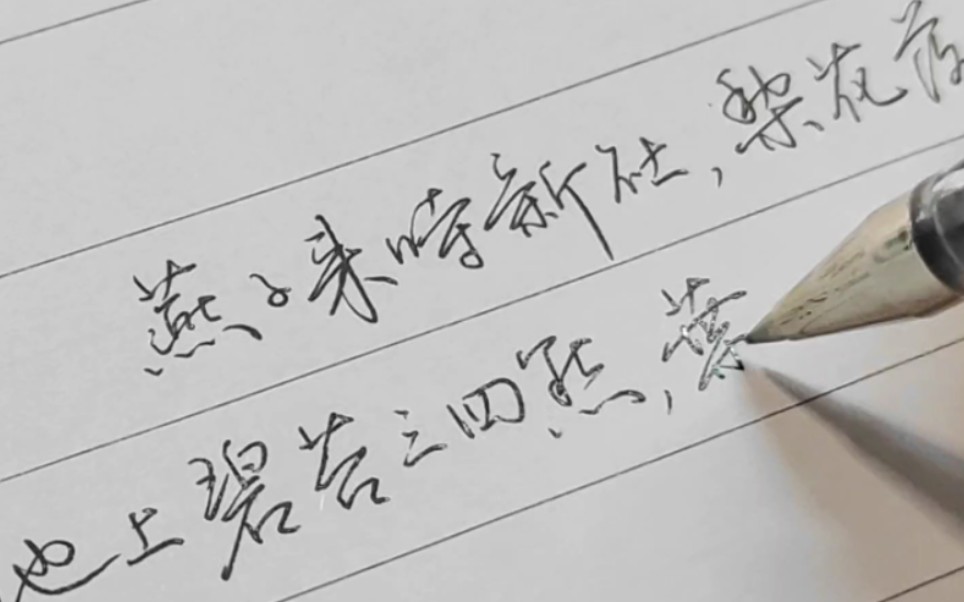 燕子来时新社,梨花落
池上碧苔三四点,葉